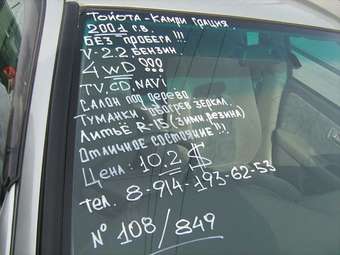 Тойота-Камри грация.
2001 г.в.
БЕЗ пробега!!!
V-2.2 БЕНЗИН.
4WD !!!
TV, CD, NAVI
Салон под дерево.
Туманки, обогрев зеркал.
Литьё R-15 (зимн. резина)
Отличное состояние!!!
Цена: 10.2 $
тел. 8-914-193-62-53
№ 108/849